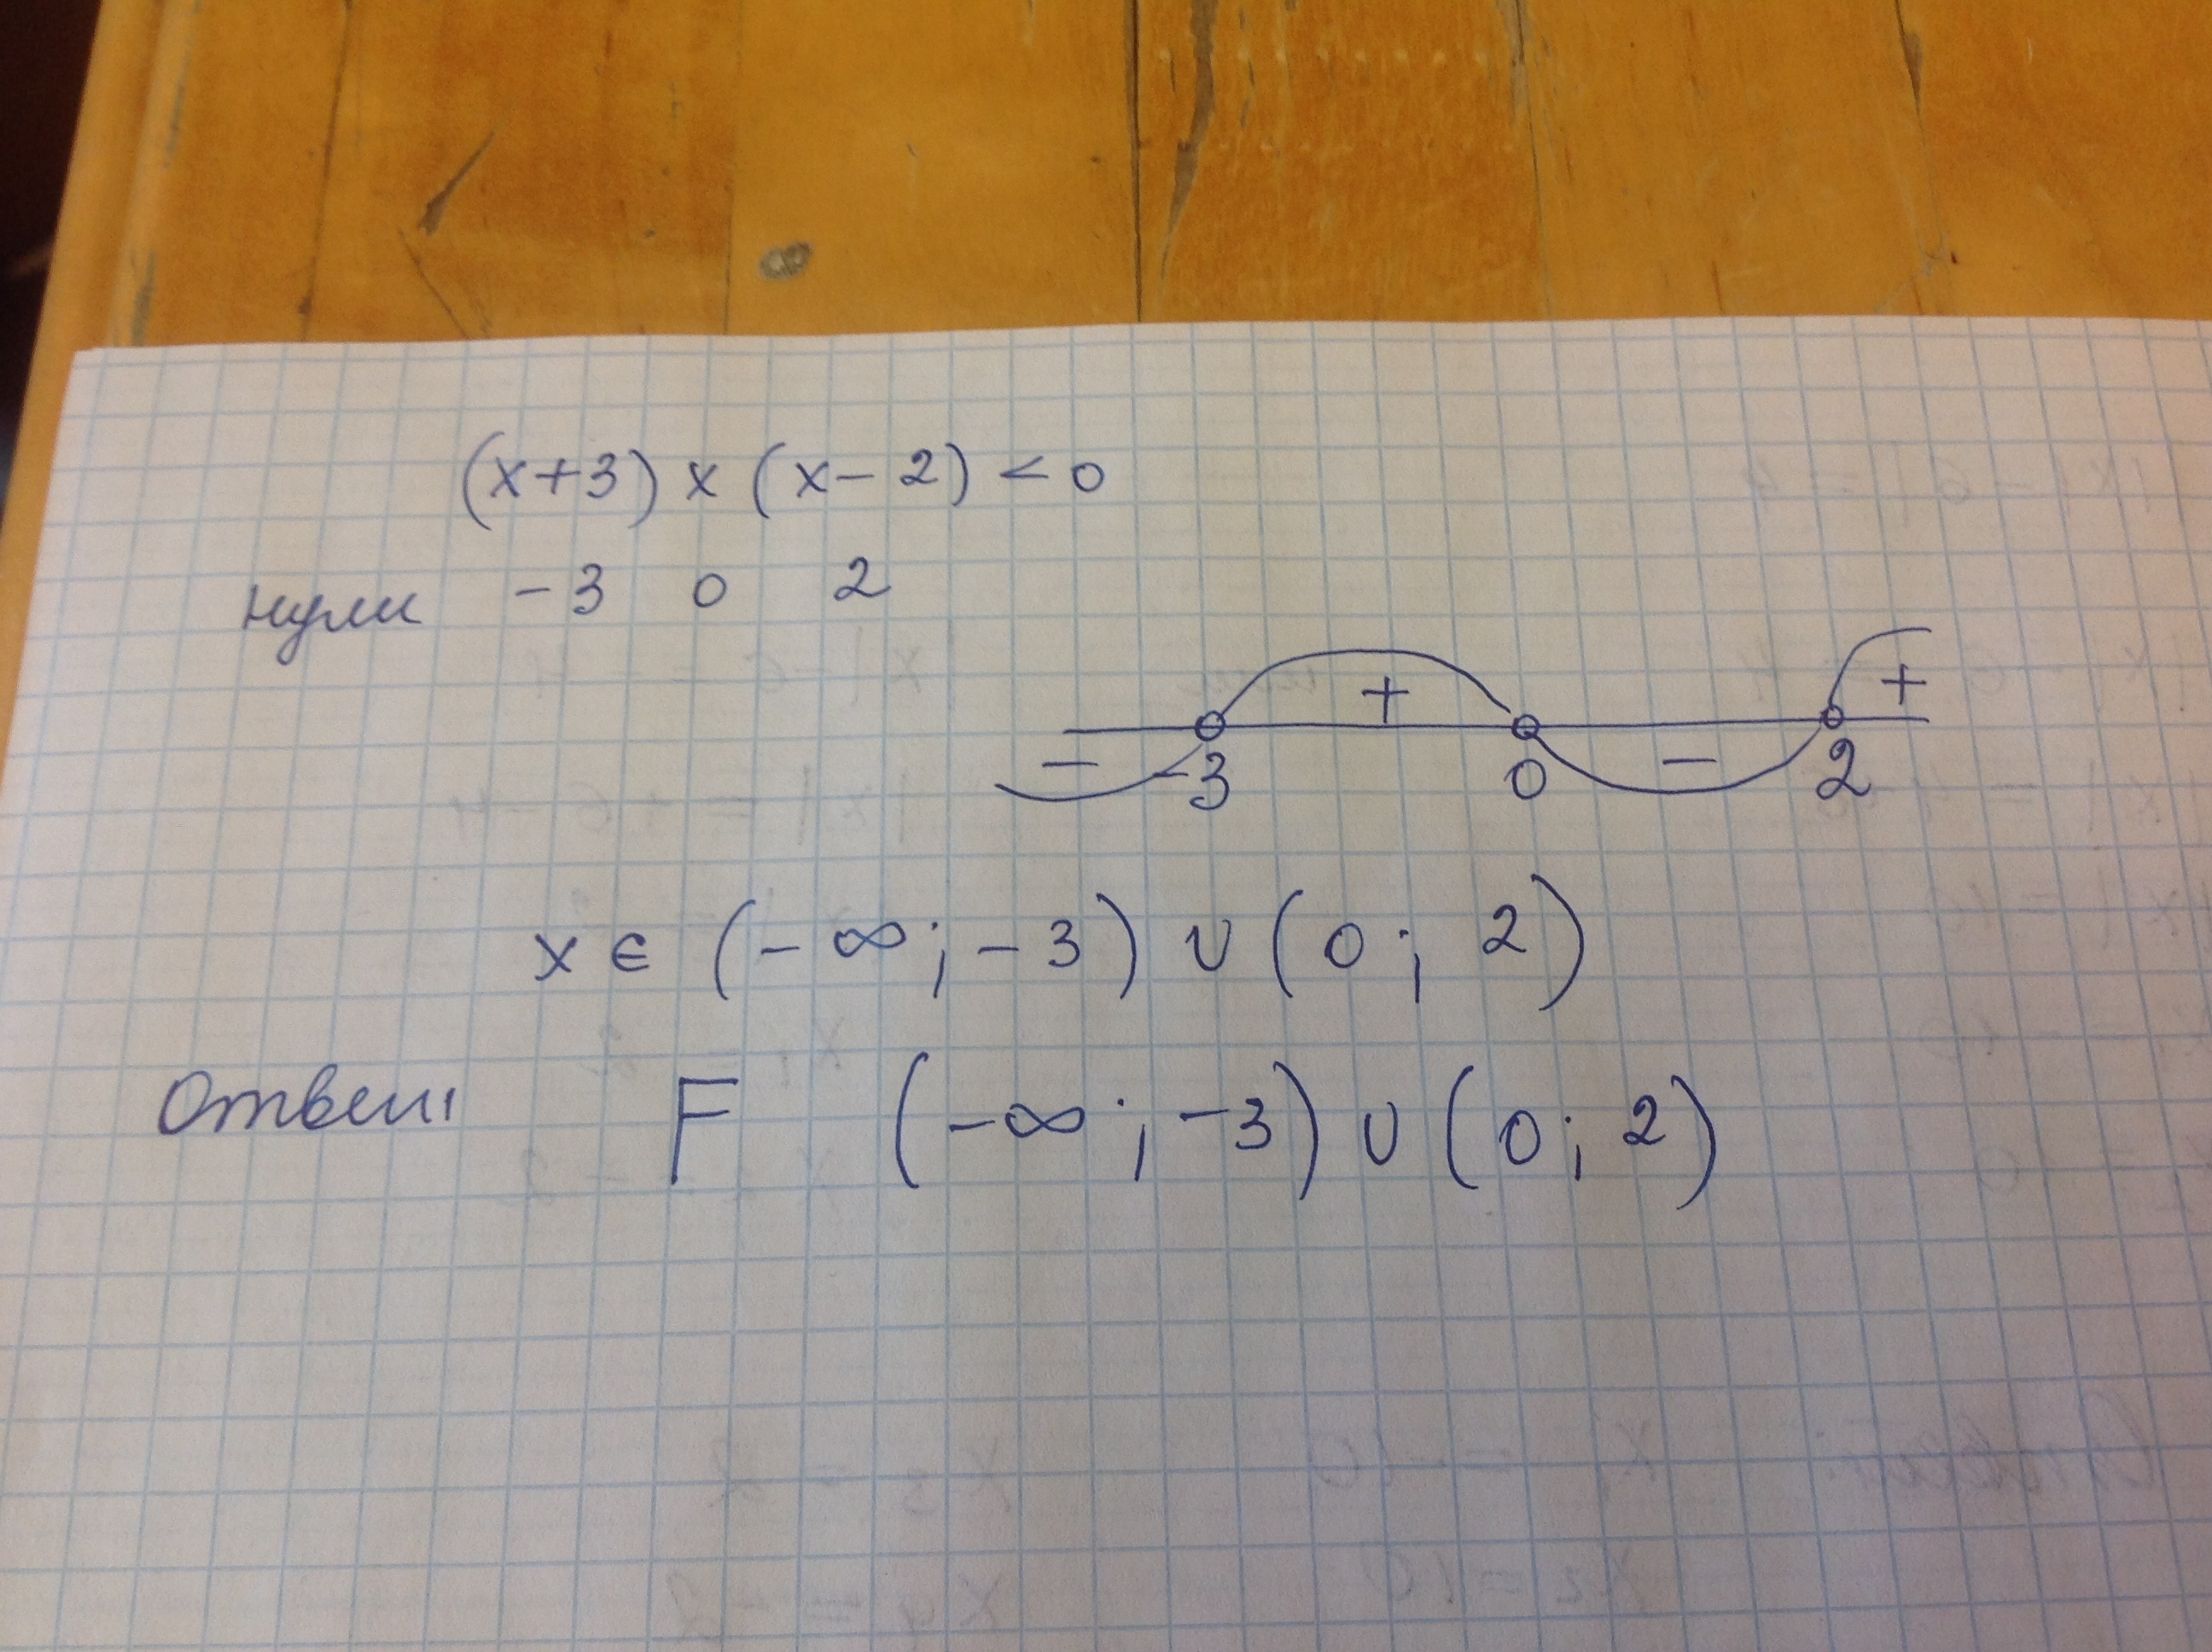 (x+3) x (x-2) < 0
нули -3 0 2
+ +
- -3 0 - 2
x ∈ (-∞; -3) ∪ (0; 2)
Ответ: F (-∞; -3) ∪ (0; 2)